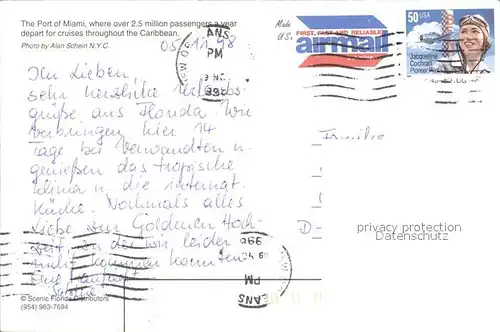 The Port of Miami, where over 2.5 million passengers a year
depart for cruises throughout the Caribbean.
Photo by Alan Schein N.Y.C.
05.11.98
Ihr Lieben,
sehr herzliche Urlaubs-
grüße aus Florida. Wir
verbringen hier 14
Tage bei Verwandten u.
genießen das tropische
Klima u. die internat.
Küche. Nochmals alles
Liebe zur Goldenen Hoch-
zeit, zu der wir leider
nicht kommen konnten.
© Scenic Florida Distributors
(954) 963-7694
FIRST, FAST AND RELIABLE
airmail
50 USA
Jacqueline
Cochran
Pioneer Pilot
ANS
PM
Familie
D-
privacy protection
Datenschutz
PM